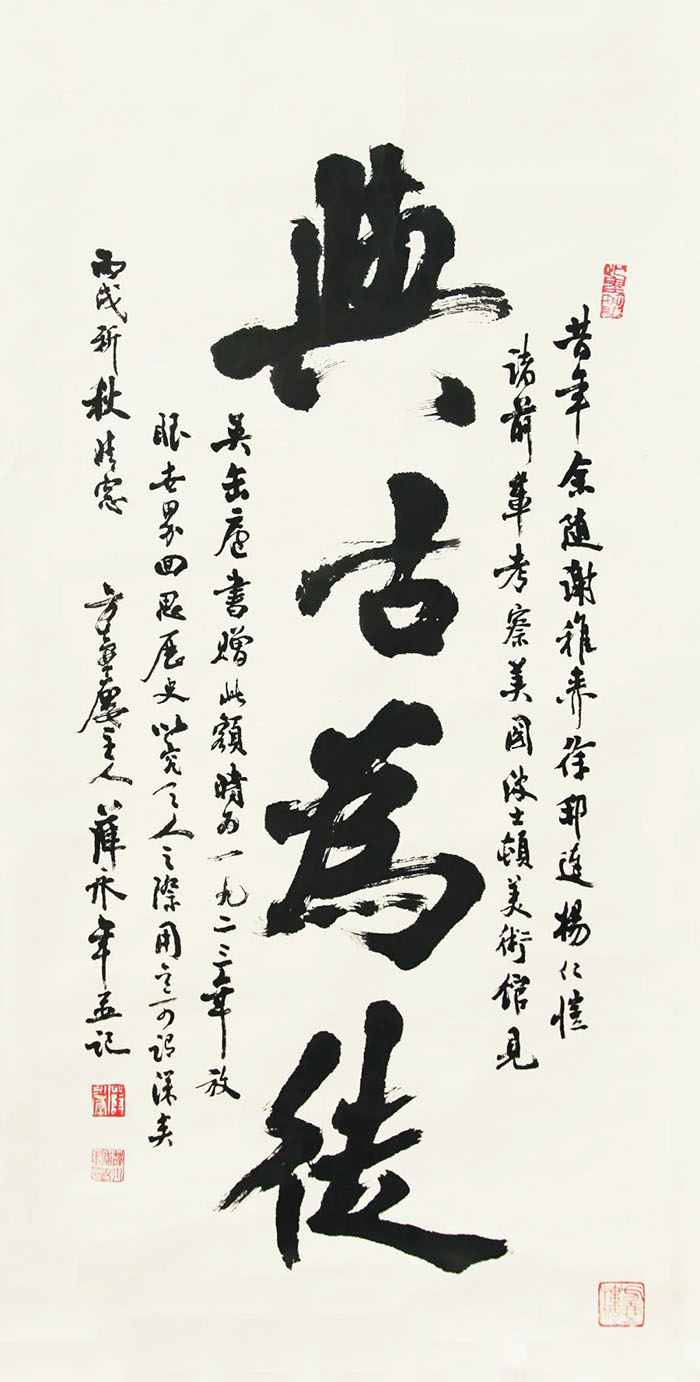 與古為徒
昔年余隨謝稚柳徐邦達楊仁愷
諸前輩考察美國波士頓美術館見
吳缶廬書贈此額時為一九二三年放
眼世界回思歷史以究天人之際用意可謂深矣
丙戌新秋晴窗 方壺樓主人薛永年並記